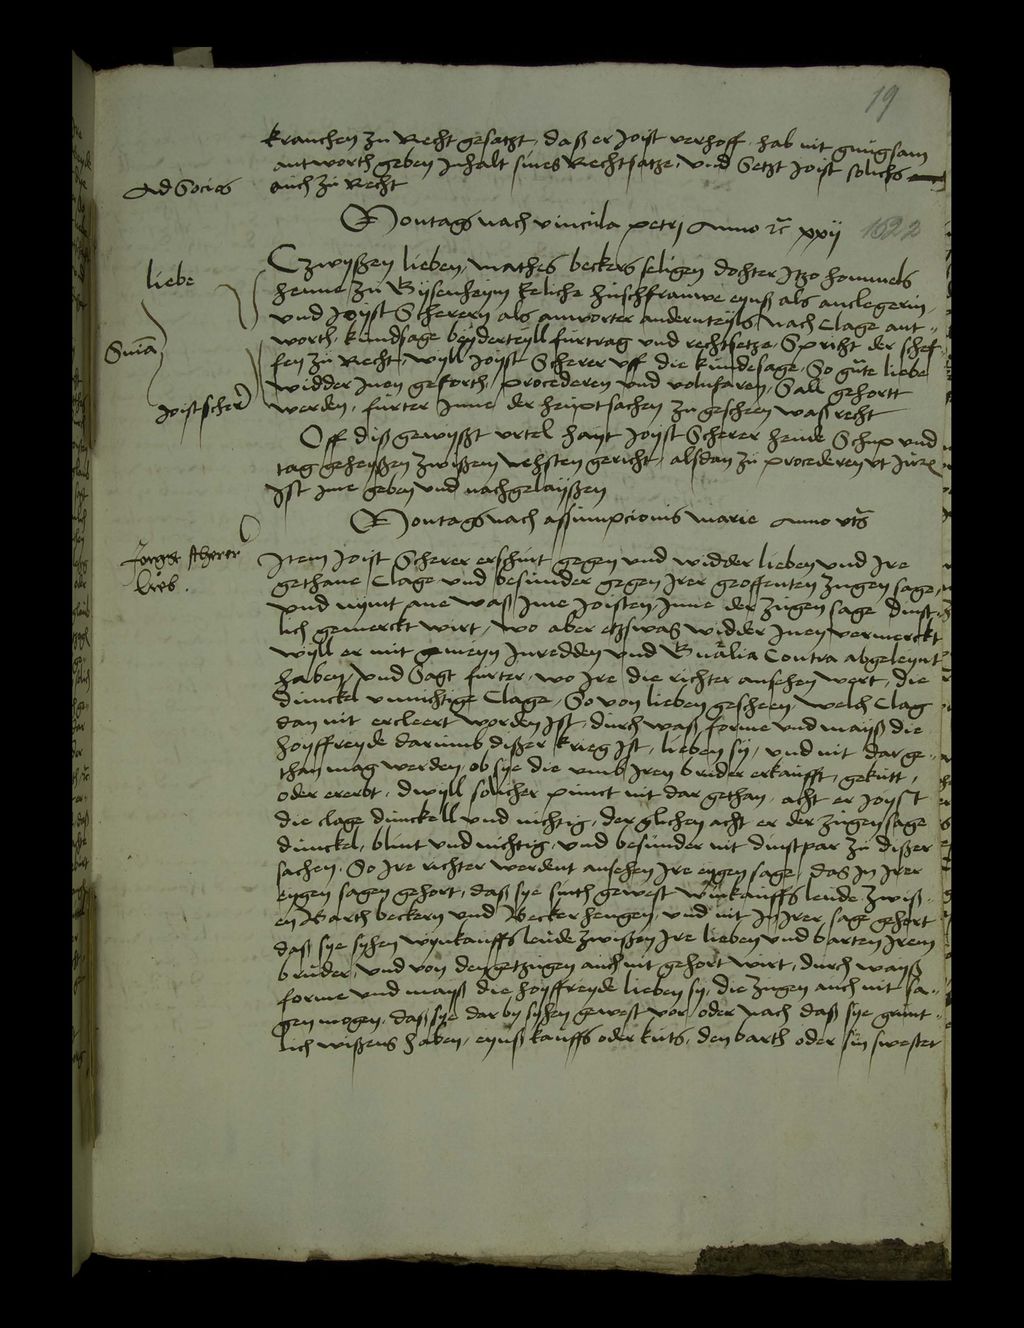 19
krauchen zu Recht gesatzt, daß er Joist verhoff, hab nit gnugsam
antworth geben Inhalt sines Rechtsatze, und Setzt Joist solichs
Ad Socios
auch zu Recht
Montags nach vincula petrj Anno rc xxij 1522
Czwyßen lieben, Mathes beckers seligen dochter Itzo hommels
liebe
henne zu Bysenheym Eeliche hußfrauwe eynß als anclegerin,
und Joyst Scherern als antworter andernteyls, Nach Clage ant-
worth, kundsage beyderteyll furtrag und rechtsetze, Spricht der schef-
Snia
fen zu Recht, wyll Joyst Scherer uff die kundesage, So gute liebe
widder Inen gefortt, procederen und volnfaren, Sall gehortt
Joist scherer
werden, furter Inne der heuptsachen zu gescheen waß recht
Off diß gewyßt urtel hayt Joyst Scherer heude Schup und
tag geheyßen zwyßem nehsten gericht, alsdan zu procederen ut Juris
Ist ime geben und nachgelayßen
Montags nach assumpcionis marie Anno uts
Jorge scherer
lieb.
Item Joist Scherer erschint gegen und widder lieben und Ire
gethane Clage und besunder gegen Irer geoffenten zugen sage,
und nympt ane waß Ime Joisten Inne der zugen sage dinst-
lich gemerckt wirt, wo aber etzswas widder Inen vermerckt
wyll er mit gemeyn Inredden und Gnalia Contra abgeleynt
haben, und Sagt furter, wo Ire die richter ansehen wert, die
dunckel unnichtige Clage, So von lieben gescheen, welch Clag
dan nit ercleert worden Ist, durch waß forme und mayß die
hoyffreyde darumb dißer krieg Ist, lieben sy, und nit darge-
than mag werden, ob sye die umb Iren bruder erkaufft, gekutt,
oder ererbt, dwyll solicher punct nit dar gethan, acht er Joyst
die clage dunckell und nichtig, derglichen acht er der zugen sage
dunckel, blint und nichtig, und besunder nit dinstpar zu dißer
sachen, So Ire richter werdent ansehen Ire eygen sage, das In Irer
eygen sagen gehort, daß sye sinth gewest wynkauffs leude zwiß-
en Barth beckern und Becker hengen, und nit In Irer sage gehort
daß sye syhen wynkauffs leude zwißen Ire lieben und barten Irem
bruder, und von den getzugen auch nit gehort wirt, durch wayß
forme und mayß die hoyffreyde lieben sy, die zugen auch nit sa-
gen mogen, daß sye dar by syhen gewest vor oder nach daß sye grunt-
lich wißens haben, eynß kauffs oder kuts, den barth oder sin swester